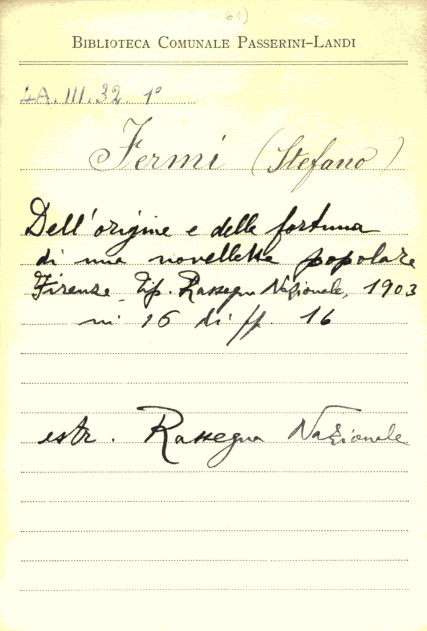 61)
BIBLIOTECA COMUNALE PASSERINI-LANDI
4A. III. 32. 1°
Fermi (Stefano)
Dell'origine e delle fortuna
di una novelletta popolare
Firenze, Tip. Rassegna Nazionale, 1903
in 16 di pp. 16
estr. Rassegna Nazionale